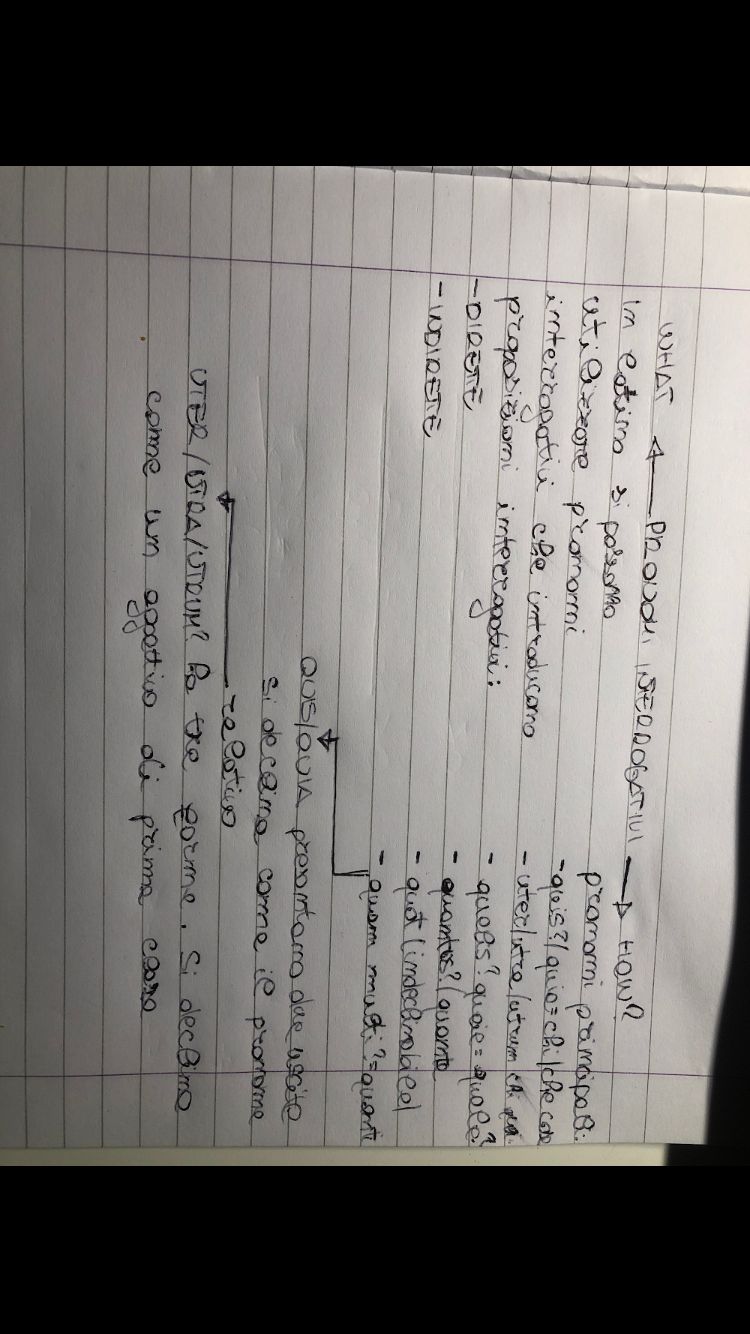 WHAT ← PRONOMI INTERROGATIVI → HOW?
In latino si possono
utilizzare pronomi
interrogativi che introducono
proposizioni interrogative:
- DIRETTE
- INDIRETTE
pronomi principali:
- quis?/quia = chi/che cosa
- uter/utra/utrum chi dei
- qualis? quale = quale?
- quantus?/quanta
- quot (indeclinabile)
- quam multi? = quanti
QUIS/QUIA presentano due uscite
si declina come il pronome
relativo
UTER/UTRA/UTRUM? ha tre forme. Si declina
come un aggettivo di prima classe